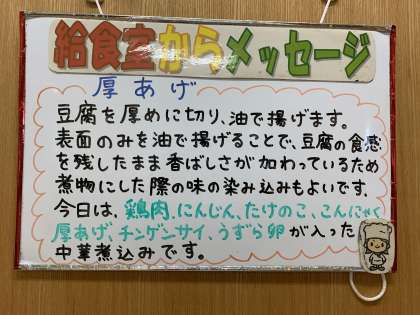 給食室からメッセージ
厚あげ
豆腐を厚めに切り、油で揚げます。
表面のみを油で揚げることで、豆腐の食感
を残したまま香ばしさが加わっているため
煮物にした際の味の染み込みもよいです。
今日は、鶏肉、にんじん、たけのこ、こんにゃく、
厚あげ、チンゲンサイ、うずら卵が入った
中華煮込みです。